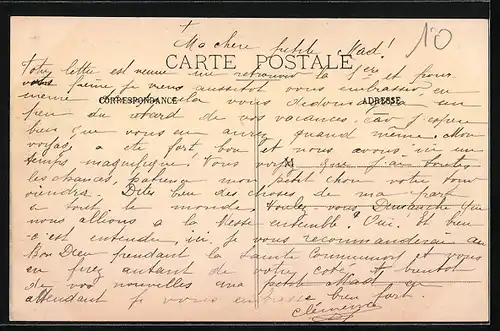 10
+
Ma chère petite Mad!
CARTE POSTALE
Votre lettre est venue me retrouver la 1ère et pour
peine je viens aussitôt vous embrasser en
même vous dédommager un
CORRESPONDANCE
ADRESSE
peu du retard de vos vacances. Car j'espère
bien que vous en aurez quand même. Mon
voyage a été fort bon et nous avons ici un
temps magnifique! Vous voyez que j'ai toutes
M
les chances, patience mon petit chou votre tour
viendra. Dites bien des choses de ma part
à tout le monde. Voulez-vous Dimanche que
nous allions à la Messe ensemble? Oui. Et bien
c'est entendu, ici je vous recommanderai au
Bon Dieu pendant la Sainte Communion et vous
en ferez autant de votre côté. A bientôt
de vos nouvelles ma petite Mad en
attendant je vous embrasse bien fort.
Clémence